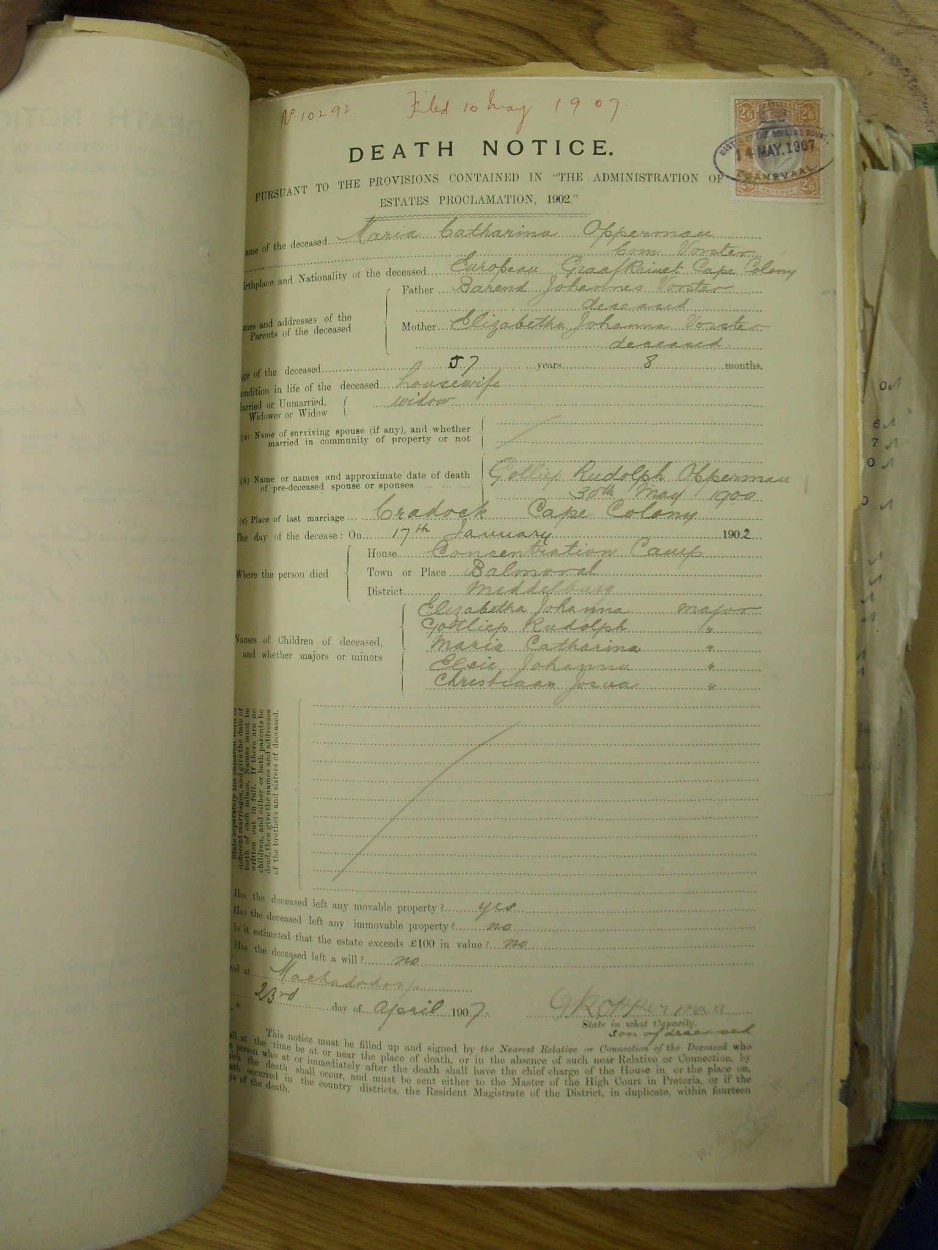 No 10292 Filed 10 May 1907.
2/6 TRANSVAAL 2/6
14 MAY.1907
TRANSVAAL
DEATH NOTICE.
PURSUANT TO THE PROVISIONS CONTAINED IN "THE ADMINISTRATION OF
ESTATES PROCLAMATION, 1902."
ame of the deceased Maria Catharina Opperman
born Vorster
irthplace and Nationality of the deceased European Graaf Reinet Cape Colony
Father Barend Johannes Vorster
deceased
mes and addresses of the
Parents of the deceased
Mother Elizabetha Johanna Vorster
deceased
ge of the deceased 57 years 8 months.
ondition in life of the deceased housewife
arried or Unmarried, widow
Widower or Widow
(a) Name of surviving spouse (if any), and whether
married in community of property or not
(b) Name or names and approximate date of death Gotliep Rudolph Opperman
of pre-deceased spouse or spouses 30th May 1900
(c) Place of last marriage Cradock Cape Colony
The day of the decease: On 17th January 1902
House Concentration Camp
Where the person died Town or Place Balmoral
District Middelburg
Elizabetha Johanna major
Gottliep Rudolph "
Names of Children of deceased, Maria Catharina "
and whether majors or minors Elsie Johanna "
Christiaan Josua "
State separately the children born of
different marriages, and give the date of
birth of each minor. Names must be
written out in full. If there are no
children, and either or both parents be
dead, then give the names and addresses
of the brothers and sisters of deceased.
Has the deceased left any movable property? yes
Has the deceased left any immovable property? no
Is it estimated that the estate exceeds £100 in value? no
Has the deceased left a will? no
ted at Machadodorp
23rd day of April 1907. G R Opperman
State in what Capacity.
Son of deceased
This notice must be filled up and signed by the Nearest Relative or Connection of the Deceased who
all at the time be at or near the place of death, or in the absence of such near Relative or Connection, by
e person who at or immediately after the death shall have the chief charge of the House in, or the place on,
ich the death shall occur, and must be sent either to the Master of the High Court in Pretoria, or if the
ath occurred in the country districts, the Resident Magistrate of the District, in duplicate, within fourteen
ys of the death.